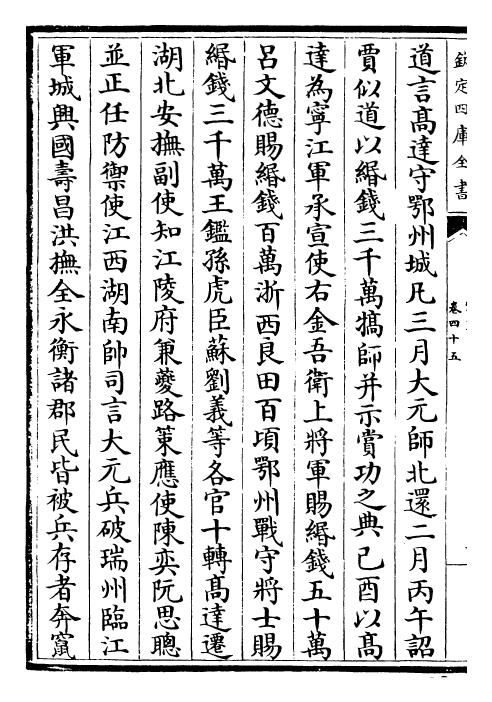 欽定四庫全書
卷四十五
道言髙達守鄂州城凡三月大元師北還二月丙午詔
賈似道以緡錢三千萬犒師并示賞功之典己酉以髙
達為寧江軍承宣使右金吾衛上將軍賜緡錢五十萬
呂文德賜緡錢百萬浙西良田百頃鄂州戰守將士賜
緡錢三千萬王鑑孫虎臣蘇劉義等各官十轉髙達遷
湖北安撫副使知江陵府兼夔路策應使陳奕阮思聰
並正任防禦使江西湖南帥司言大元兵破瑞州臨江
軍城興國壽昌洪撫全永衡諸郡民皆被兵存者奔竄